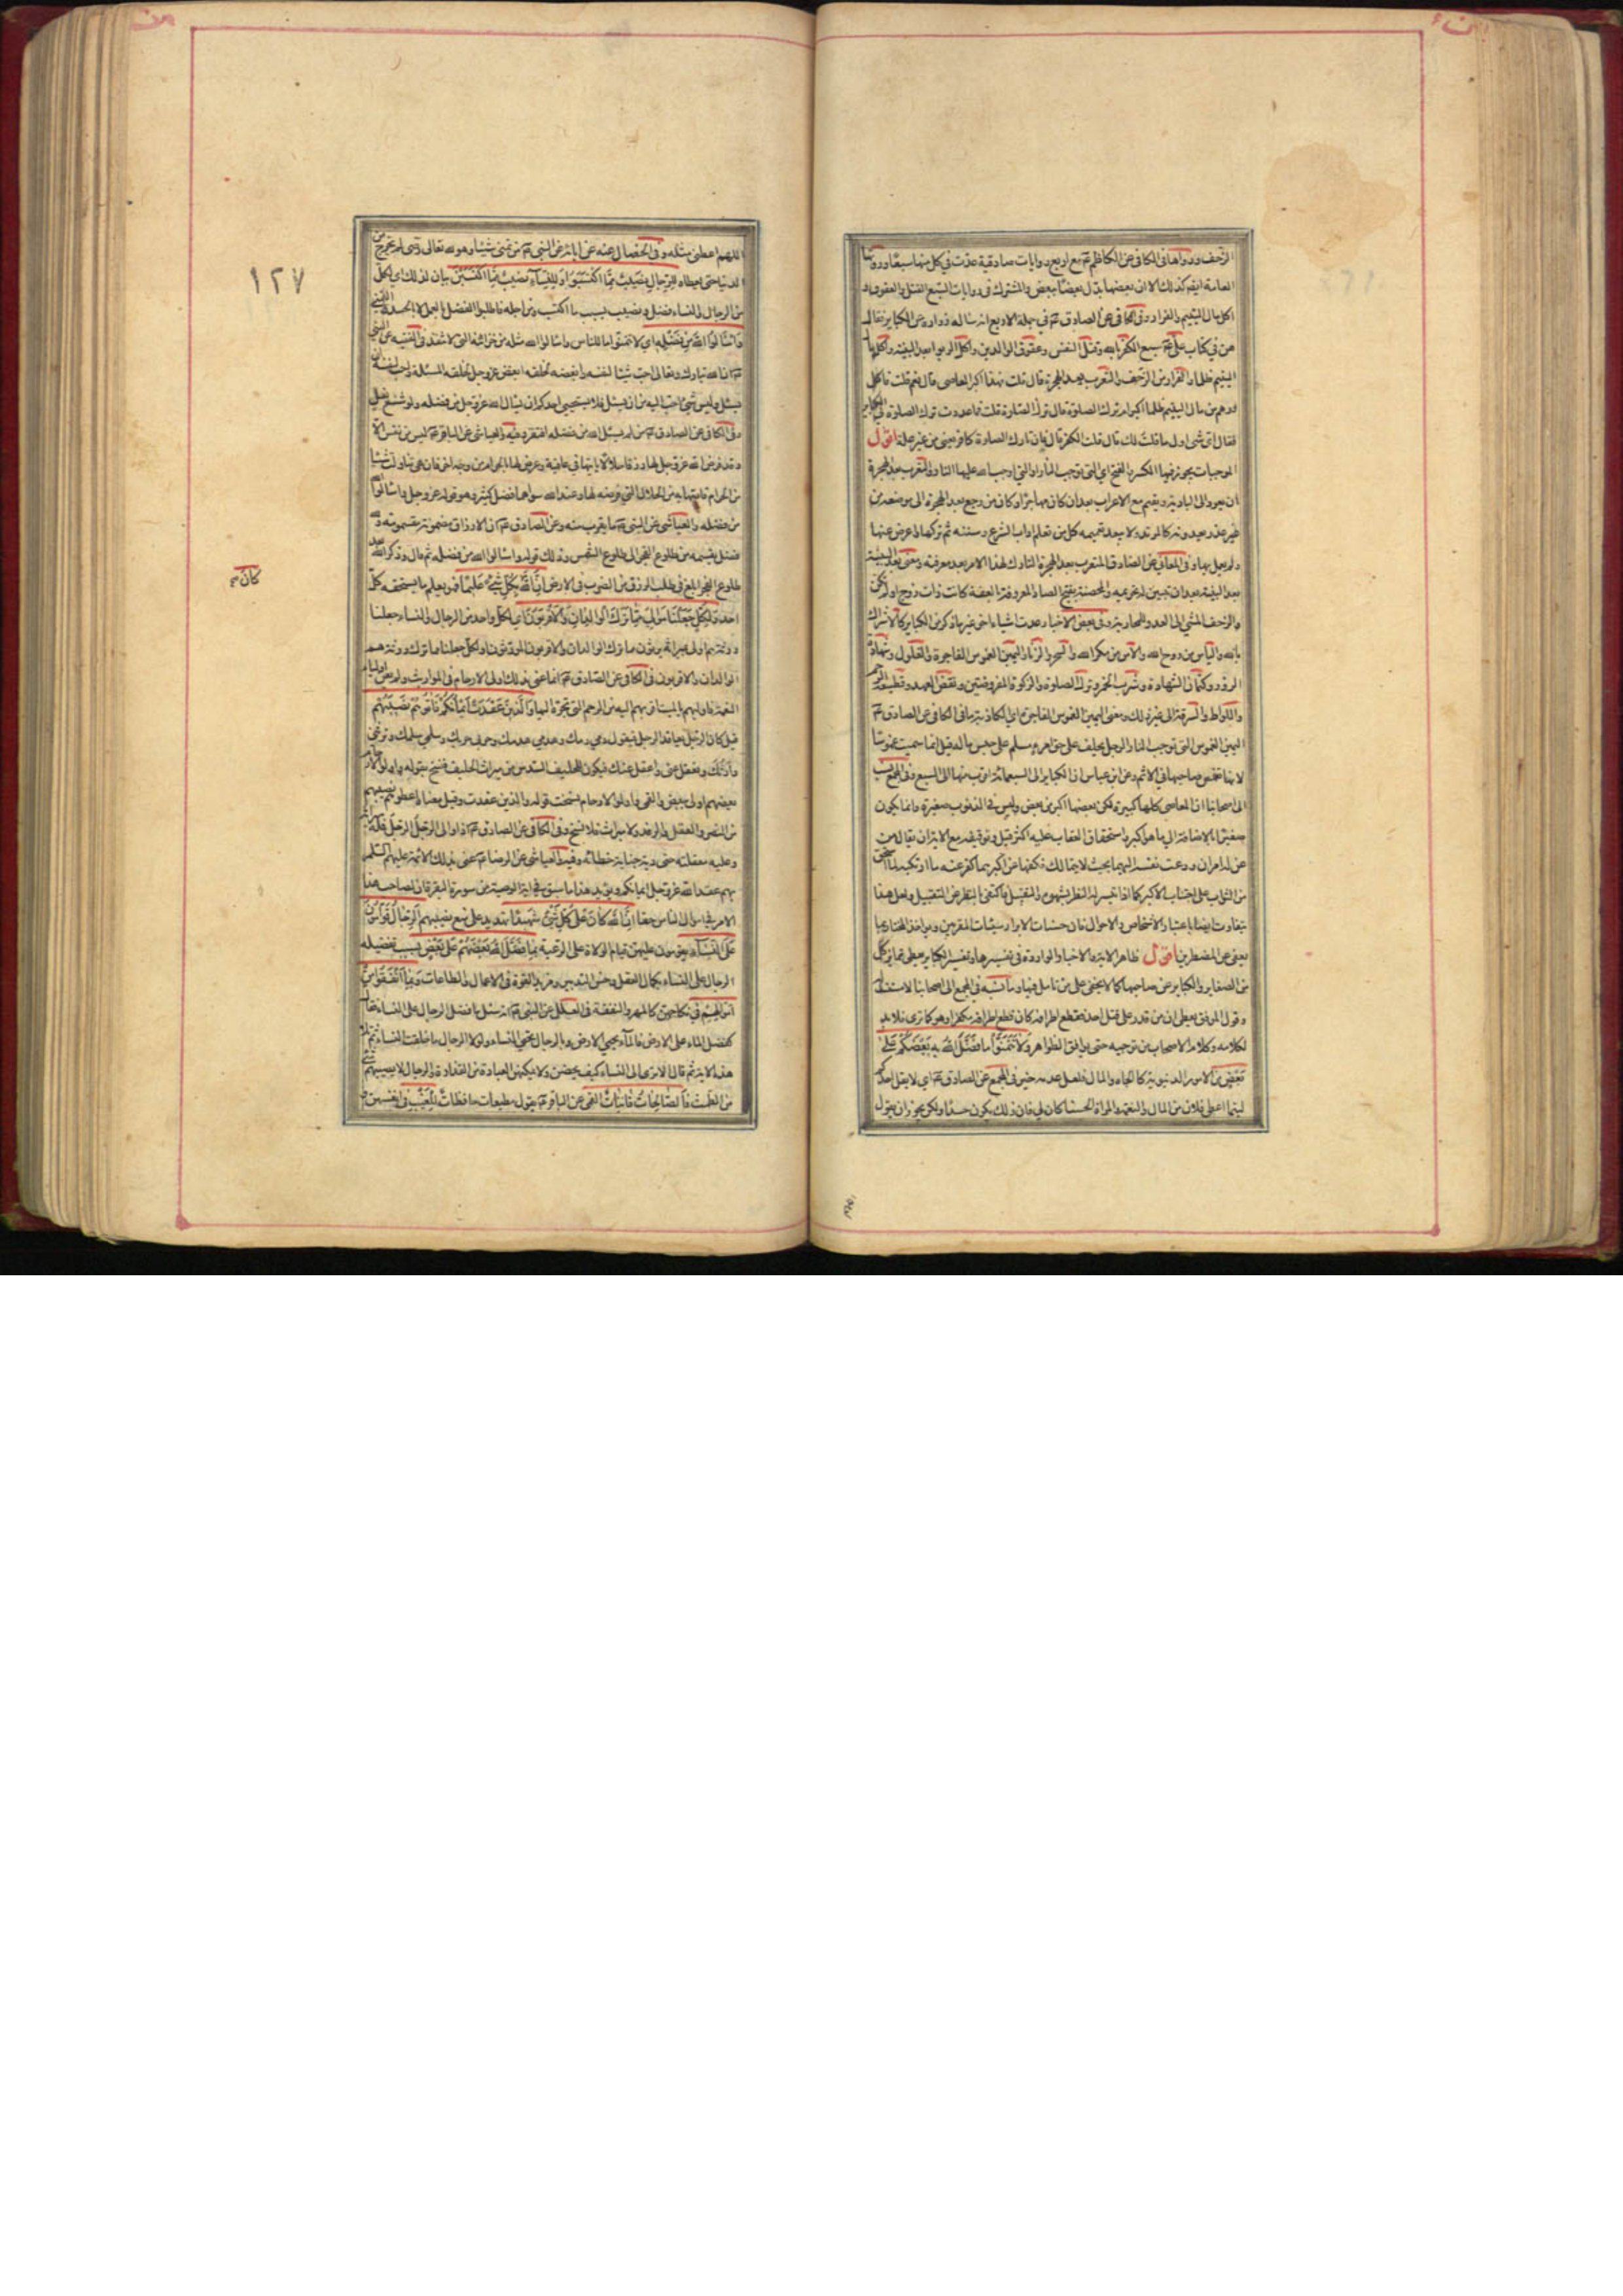 الزحف ورواها في الكافي عن الكاظم ع مع اربع روايات صادقية عدت في كل منها سبعا ورواها
العامة ايضا كذلك الا ان بعضها بدل بعضا ببعض والمشترك في روايات السبع القتل والعقوق و
اكل مال اليتيم والفرار وفي الكافي عن الصادق ع في جملة الاربع انه ساله زرارة عن الكباير فقال
هن في كتاب علي ع سبع الكفر بالله وقتل النفس وعقوق الوالدين واكل الربوا بعد البينة واكل مال
اليتيم ظلما والفرار من الزحف والتعرب بعد الهجرة قال قلت فهذا اكبر المعاصي قال نعم قلت فاكل
درهم من مال اليتيم ظلما اكبر ام ترك الصلوة قال ترك الصلوة قلت فما عددت ترك الصلوة في الكباير
فقال اي شئ اول ما قلت لك قال قلت الكفر قال فان تارك الصلوة كافر يعني من غير علة اقول
الموجبات يجوز فيها الكسر والفتح اي التي توجب النار او التي اوجب الله عليها النار والتعرب بعد الهجرة
ان يعود الى البادية ويقيم مع الاعراب بعد ان كان مهاجرا وكان من رجع بعد الهجرة الى موضعه من
غير عذر يعدونه كالمرتد ولا يبعد تعميمه كل من تعلم اداب الشرع وسننه ثم تركها واعرض عنها
ولم يعمل بها وفي المعاني عن الصادق المتعرب بعد الهجرة التارك لهذا الامر بعد معرفته ومعنى بعد البينة
بعد ان تبين له تحريمه والمحصنة بفتح الصاد المعروفة بالعفة كانت ذات زوج او لم تكن
والزحف المشي الى العدو للمحاربة وفي بعض الاخبار عدت اشياء اخر غير ما ذكر من الكباير كالاشراك
بالله والياس من روح الله والامن من مكر الله والسحر والزنا واليمين الغموس الفاجرة والغلول وشهادة
الزور وكتمان الشهادة وشرب الخمر وترك الصلوة والزكوة المفروضتين ونقض العهد وقطيعة الرحم
واللواط والسرقة الى غير ذلك ومعنى اليمين الغموس الفاجرة اي الكاذبة وفي الكافي عن الصادق ع
اليمين الغموس التي توجب النار الرجل يحلف على حق امرء مسلم على حبس ماله قيل انما سميت غموسا
لانها تغمس صاحبها في الاثم وعن ابن عباس ان الكباير الى السبعمائة اقرب منها الى السبع وفي المجمع نسب
الى اصحابنا ان المعاصي كلها كبيرة لكن بعضها اكبر من بعض وليس في الذنوب صغيرة وانما يكون
صغيرا بالاضافة الى ما هو اكبر واستحقاق العقاب عليه اكثر قيل وتوفيقه مع الاية ان يقال من
عن له امران ودعت نفسه اليهما بحيث لا يتمالك فكفها عن اكبرهما كفر عنه ما ارتكبه لما استحق
من الثواب على اجتناب الاكبر كما اذا تيسر له النظر بشهوة والتقبيل فاكتفى بالنظر عن التقبيل ولعل هذا
يتفاوت ايضا باعتبار الاشخاص والاحوال فان حسنات الابرار سيئات المقربين ويؤاخذ المختار بما
يعفى عن المضطرين اقول ظاهر الاية والاخبار الواردة في تفسيرها وتفسير الكباير يعطي تمايز كل
من الصغاير والكباير عن صاحبها كما لا يخفى على من تامل فيها وما نسبه في المجمع الى اصحابنا لا مستند له
وقول الموفق يعطي ان من قدر على قتل احد فقطع اطرافه كان قطع اطرافه مكفرا وهو كما ترى فلابد
لكلامه وكلام الاصحاب من توجيه حتى يوافق الظواهر ولا تتمنوا ما فضل الله به بعضكم على
بعض من الامور الدنيوية كالجاه والمال فلعل عدمه خير في المجمع عن الصادق ع اي لا يقل احدكم
ليت ما اعطي فلان من المال والنعمة والمراة الحسناء كان لي فان ذلك يكون حسدا ولكن يجوز ان يقول
اللهم اعطني مثله وفي الخصال عنه عن ابائه عن النبي ص من تمنى شيئا وهو لله تعالى رضى لم يخرج من
الدنيا حتى يعطاه للرجال نصيب مما اكتسبوا وللنساء نصيب مما اكتسبن بيان لذلك اي لكل
من الرجال والنساء فضل ونصيب بسبب ما اكتسب ومن اجله فاطلبوا الفضل بالعمل لا بالحسد والتمني
واسالوا الله من فضله اي لا تتمنوا ما للناس واسالوا الله مثله من خزائنه التي لا تنفد في الفقيه عن النبي
ص ان الله تبارك وتعالى احب شيئا لنفسه وابغضه لخلقه ابغض عز وجل لخلقه المسئلة واحب لنفسه ان
يسئل وليس شئ احب اليه من ان يسئل فلا يستحيي احدكم ان يسال الله عز وجل من فضله ولو شسع نعل
وفي الكافي عن الصادق ع من لم يسئل الله من فضله افتقر وفيه والعياشي عن الباقر ع ليس من نفس الا
وقد فرض الله عز وجل لها رزقا حلالا ياتيها في عافية وعرض لها بالحرام من وجه اخر فان هي تناولت شيئا
من الحرام قاصها به من الحلال الذي فرض لها وعند الله سواهما فضل كثير وهو قوله عز وجل واسالوا
من فضله والعياشي عن النبي ص ما يقرب منه وعن الصادق ع ان الارزاق مضمونة مقسومة ولله
فضل يقسمه من طلوع الفجر الى طلوع الشمس وذلك قوله واسالوا الله من فضله ثم قال وذكر الله بعد
طلوع الفجر ابلغ في طلب الرزق من الضرب في الارض ان الله بكل شئ عليما فهو يعلم ما يستحقه كل
كان صح
احد ولكل جعلنا موالي مما ترك الوالدان والاقربون اي لكل واحد من الرجال والنساء جعلنا
ورثة هم اولى بميراثه يرثون مما ترك الوالدان والاقربون الموروثون او لكل جعلنا مما ترك ورثة هم
الوالدان والاقربون في الكافي عن الصادق ع انما عنى بذلك اولي الارحام في المواريث ولم يعن اولياء
النعمة فاولهم بالميت اقربهم اليه من الرحم التي تجره اليها والذين عقدت ايمانكم فاتوهم نصيبهم
قيل كان الرجل يعاقد الرجل فيقول دمي دمك وهدمي هدمك وحربي حربك وسلمي سلمك وترثني
وارثك وتعقل عني واعقل عنك فيكون للحليف السدس من ميراث الحليف فنسخ بقوله واولوا الارحام
بعضهم اولى ببعض والقمي واولوا الارحام نسخت قوله والذين عقدت وقيل معناه اعطوهم نصيبهم
من النصر والعقل والرفد ولا ميراث فلا نسخ وفي الكافي عن الصادق ع اذا والى الرجل الرجل فله ميراثه
وعليه معقلته يعني دية جناية خطائه وفيه والعياشي عن الرضا ع عنى بذلك الائمة عليهم السلام
بهم عقد الله عز وجل ايمانكم ويؤيد هذا ما سبق في اية الوصية من سورة البقرة ان لصاحب هذا
الامر في اموال الناس حقا ان الله كان على كل شئ شهيدا تهديد على منع نصيبهم الرجال قوامون
على النساء يقومون عليهن قيام الولاة على الرعية بما فضل الله بعضهم على بعض بسبب تفضيله
الرجال على النساء بكمال العقل وحسن التدبير ومزيد القوة في الاعمال والطاعات وبما انفقوا من
اموالهم في نكاحهن كالمهر والنفقة في العلل عن النبي ص انه سئل ما فضل الرجال على النساء فقال
كفضل الماء على الارض فبالماء يحيى الارض وبالرجال تحيى النساء ولولا الرجال ما خلقت النساء ثم تلا
هذه الاية ثم قال الا ترى الى النساء كيف يحضن ولا يمكنهن العبادة من القذارة والرجال لا يصيبهم شئ
من الطمث فالصالحات قانتات القمي عن الباقر ع يقول مطيعات حافظات للغيب في انفسهن و
١٢٧